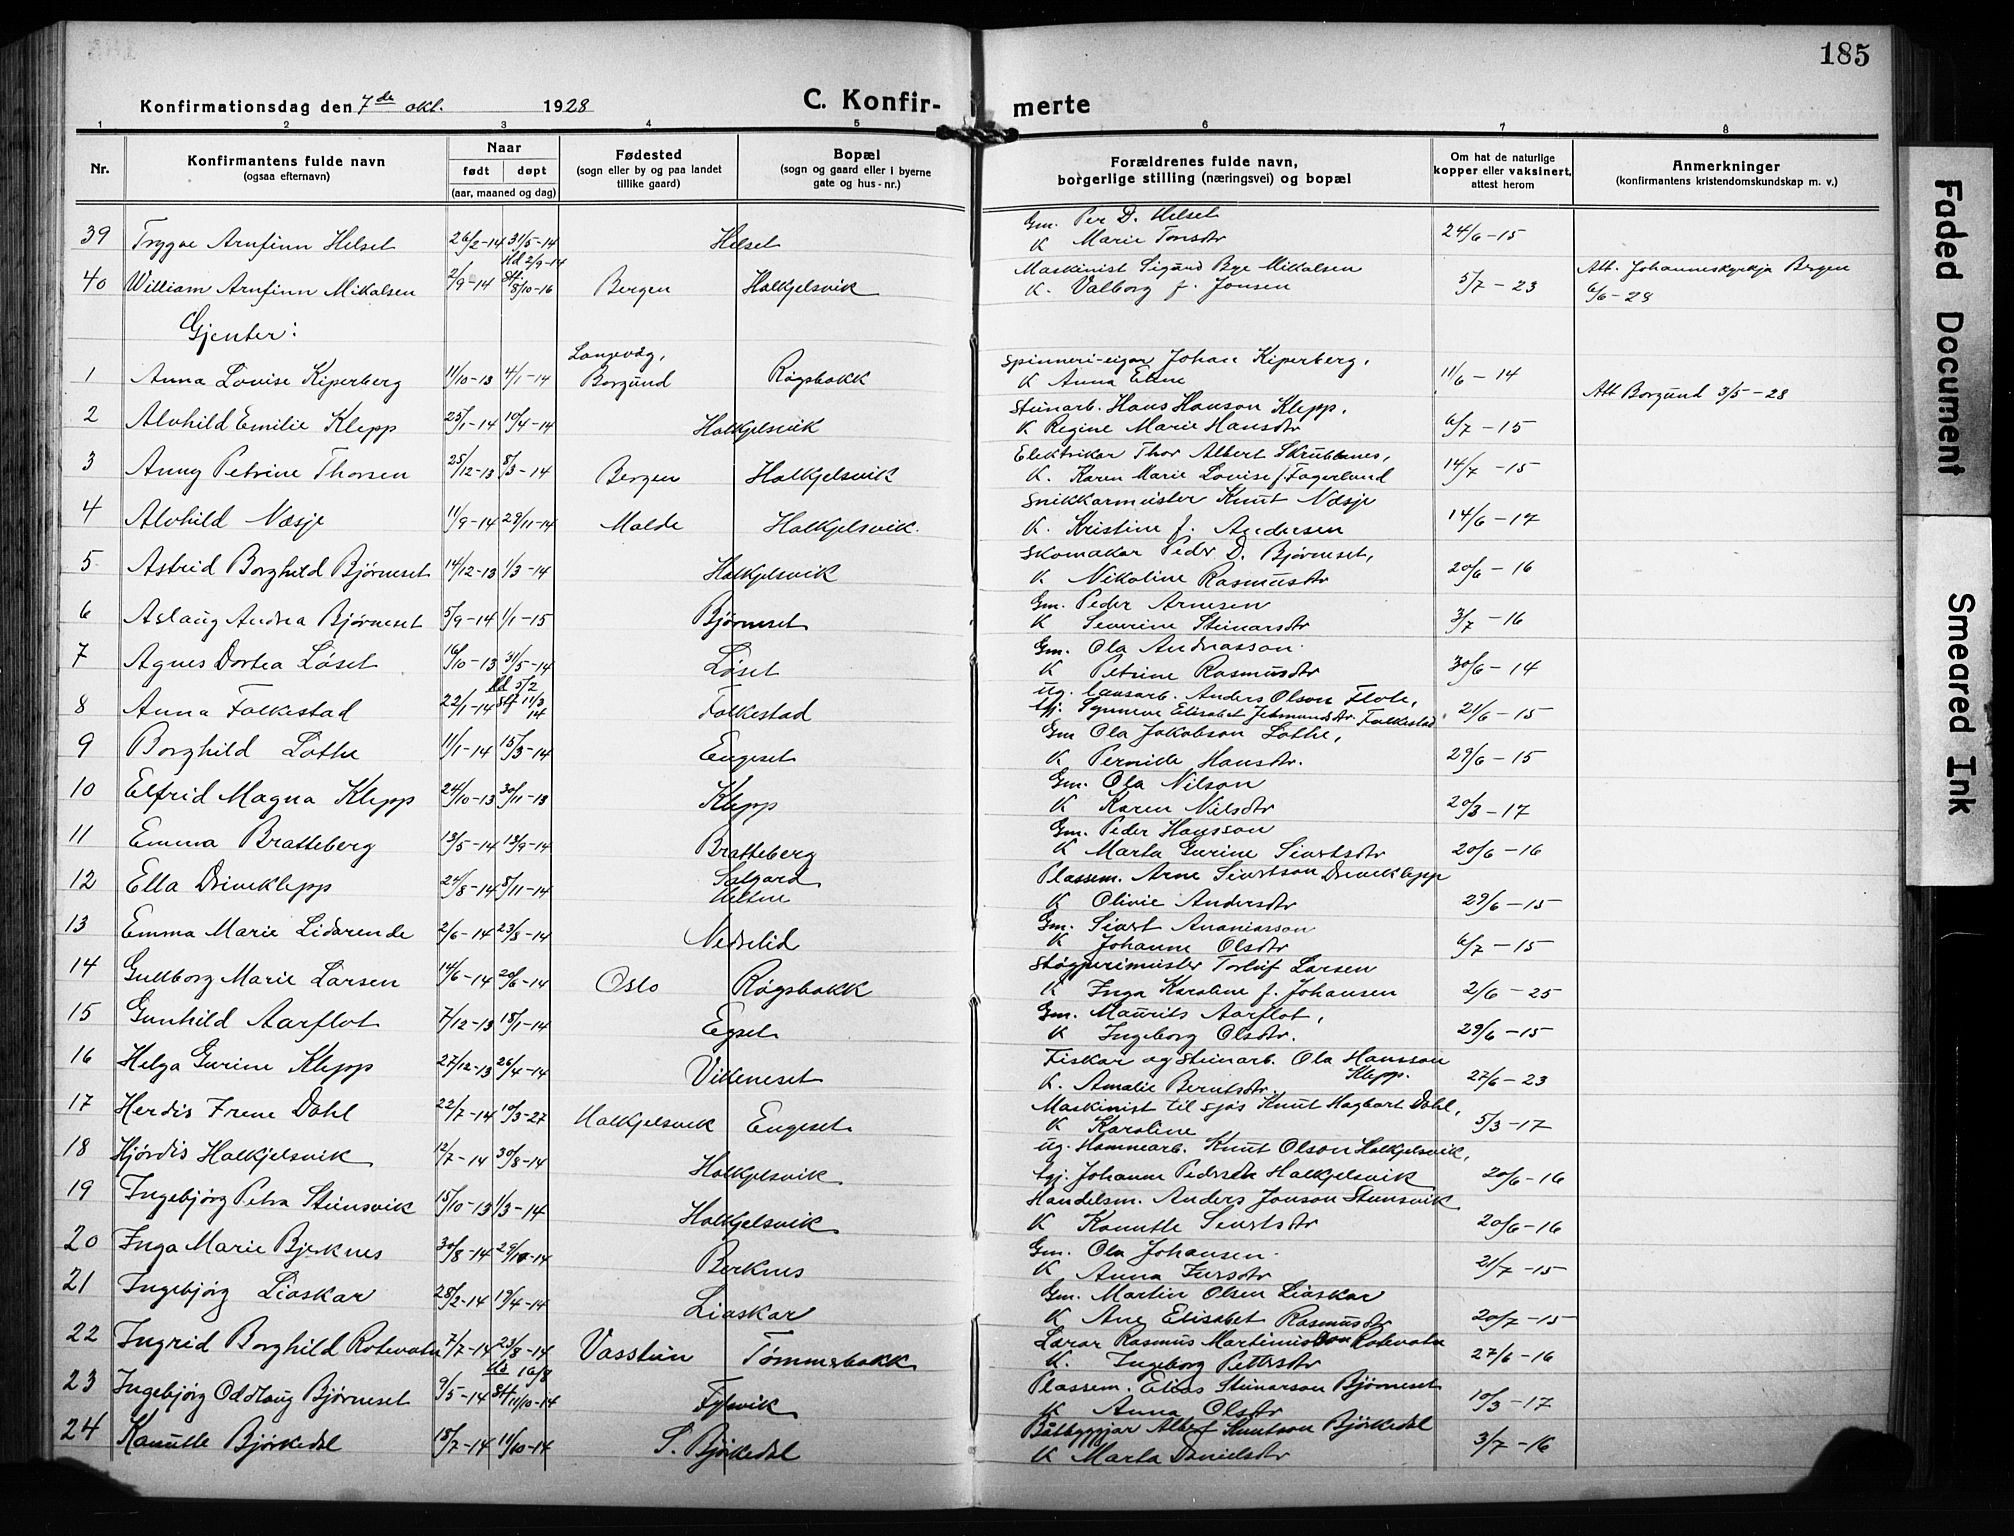 185
Konfirmationsdag den 7de okt. 1928 C. Konfir- merte
1 2 3 4 5 6 7 8
Nr. Konfirmantens fulde navn (ogsaa efternavn) Naar født døpt (aar, maaned og dag) Fødested (sogn eller by og paa landet tillike gaard) Bopæl (sogn og gaard eller i byerne gate og hus-nr.) Forældrenes fulde navn, borgerlige stilling (næringsvei) og bopæl Om hat de naturlige kopper eller vaksinert, attest herom Anmerkninger (konfirmantens kristendomskundskap m. v.)
39 Trygve Arnfinn Helset 26/2-14 31/5-14 Helset Gm. Per D. Helset K Marie Tonsdtr 24/6-15
40 William Arnfinn Mikalsen 2/9-14 Hd 2/9-14 St 8/10-16 Bergen Halkjelsvik Maskinist Sigurd Bye Mikalsen K. Valborg f. Jonsen 5/7-23 Att. Johanneskyrkja Bergen 6/6-28
Gjenter:
1 Anna Lovise Kiperberg 11/10-13 4/1-14 Langevåg, Borgund Røgsbakk Spinneri-eigar Johan Kiperberg, K Anna Eline 11/6-14 Att Borgund 3/5-28
2 Alvhild Emilie Klepp 25/1-14 10/4-14 Halkjelsvik Steinarb. Hans Hanson Klepp, K Regine Marie Hansdtr 6/7-15
3 Anny Petrine Thorsen 25/12-13 8/3-14 Bergen Halkjelsvik Elektrikar Thor Albert Skrubbnes, K. Karen Marie Lovise f. Fagerlund 14/7-15
4 Alvhild Næsje 11/9-14 29/11-14 Molde Halkjelsvik. Snikkarmeister Knut Næsje K. Kristine f. Andersen 14/6-17
5 Astrid Borghild Bjørneset 14/12-13 1/3-14 Halkjelsvik Skomakar Peder D. Bjørneset, K Nikoline Rasmusdtr 20/6-16
6 Aslaug Andrea Bjørneset 5/9-14 1/1-15 Bjørneset Gm. Peder Arnesen K Severine Steinarsdtr 3/7-16
7 Agnes Dortea Løset 16/10-13 31/5-14 Løset Gm. Ola Andreasson K Petrine Rasmusdtr 30/6-14
8 Anna Folkestad 22/1-14 Hd 5/2 St 11/3 14 Folkestad Ug. lausarb. Anders Olson Flote, tj. Synneve Elisabet Jetmundsdtr. Folkestad 21/6-15
9 Borghild Løthe 11/1-14 15/3-14 Engeset Gm Ola Jakobson Løthe, K Pernille Hansdtr. 29/6-15
10 Elfrid Magna Klepp 24/10-13 30/11-13 Klepp Gm. Ola Nilson K Karen Nielsdtr 20/3-17
11 Emma Bratteberg 13/5-14 13/9-14 Bratteberg Gm. Peder Hansson K Marta Gurine Sivertsdtr 20/6-16
12 Ella Driveklepp 24/8-14 8/11-14 Heltne Plassem. Arne Sivertson Driveklepp K Olivie Andersdtr 29/6-15
13 Emma Marie Lidarende 2/6-14 23/8-14 Nedrelid Gm. Sivert Ananiasson K Johanne Olsdtr 6/7-15
14 Gullborg Marie Larsen 14/6-14 20/6-14 Oslo Røgsbakk Støyperimeister Torleif Larsen K Inga Karoline f. Johansen 2/6-25
15 Gunhild Aarflot 7/12-13 18/1-14 Egset Gm. Maurits Aarflot, K Ingeborg Olsdtr. 29/6-15
16 Helga Gurine Klepp 27/12-13 26/4-14 Vikeneset Fiskar og steinarb. Ola Hansson Klepp. K. Amalie Berntsdtr. 27/6-23
17 Herdis Irene Dahl 22/7-14 10/3-27 Halkjelsvik Engeset Maskinist til sjøs Knut Hagbart Dahl, K Karoline 5/3-17
18 Hjørdis Halkjelsvik 12/7-14 30/8-14 Halkjelsvik Ug. Hamnearb. Knut Olson Halkjelsvik, tj. Johanne Pedersdtr Halkjelsvik 20/6-16
19 Ingebjørg Petra Steinsvik 15/10-13 1/3-14 Halkjelsvik Handelsm. Anders Jonson Steinsvik K Kanutte Sivertsdtr 20/6-16
20 Inga Marie Bjerknes 30/8-14 29/10-14 Berknes Gm. Ola Johansen K Anna Iversdtr 21/7-15
21 Ingebjørg Liaskar 28/2-14 19/4-14 Liaskar Gm. Martin Olsen Liaskar K Ane Elisabet Rasmusdtr 20/7-15
22 Ingrid Borghild Rotevatn 7/7-14 23/8-14 Vasstun Tømmerbakk Lærar Rasmus Martinusson Rotevatn K. Ingeborg Pettersdtr 27/6-16
23 Ingebjørg Oddlaug Bjørneset 9/5-14 Hd 16/8 St 11/10-14 Fyrvik Plassem. Elias Steinarson Bjørneset K Anna Olsdtr 10/3-17
24 Kanutte Bjørkedal 18/7-14 11/10-14 S. Bjørkedal Båtbyggjar Albert Knutson Bjørkedal K Marta Danielsdtr 3/7-16
Faded Document
Smeared Ink